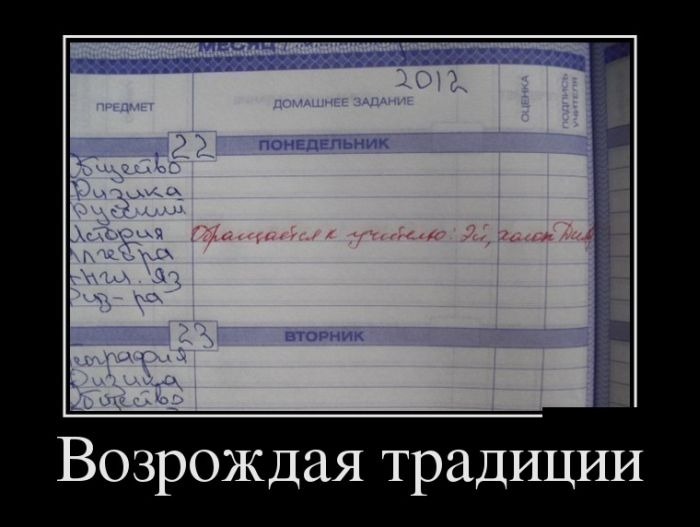 МЕСЯЦ
2012
ПРЕДМЕТ
ДОМАШНЕЕ ЗАДАНИЕ
ОЦЕНКА
ПОДПИСЬ УЧИТЕЛЯ
22
ПОНЕДЕЛЬНИК
Общество
Физика
Русский
История
Обращается к учителю: Эй, холоп
Алгебра
Англ. яз
Физ-ра
23
ВТОРНИК
География
Физика
Общество
Возрождая традиции